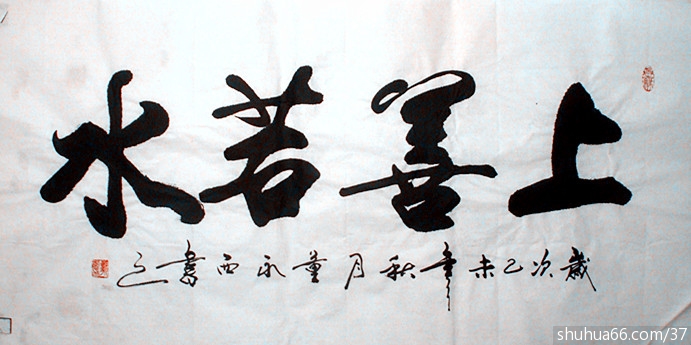 上善若水
歲次未年秋月董永西書之
shuhua66.com/37